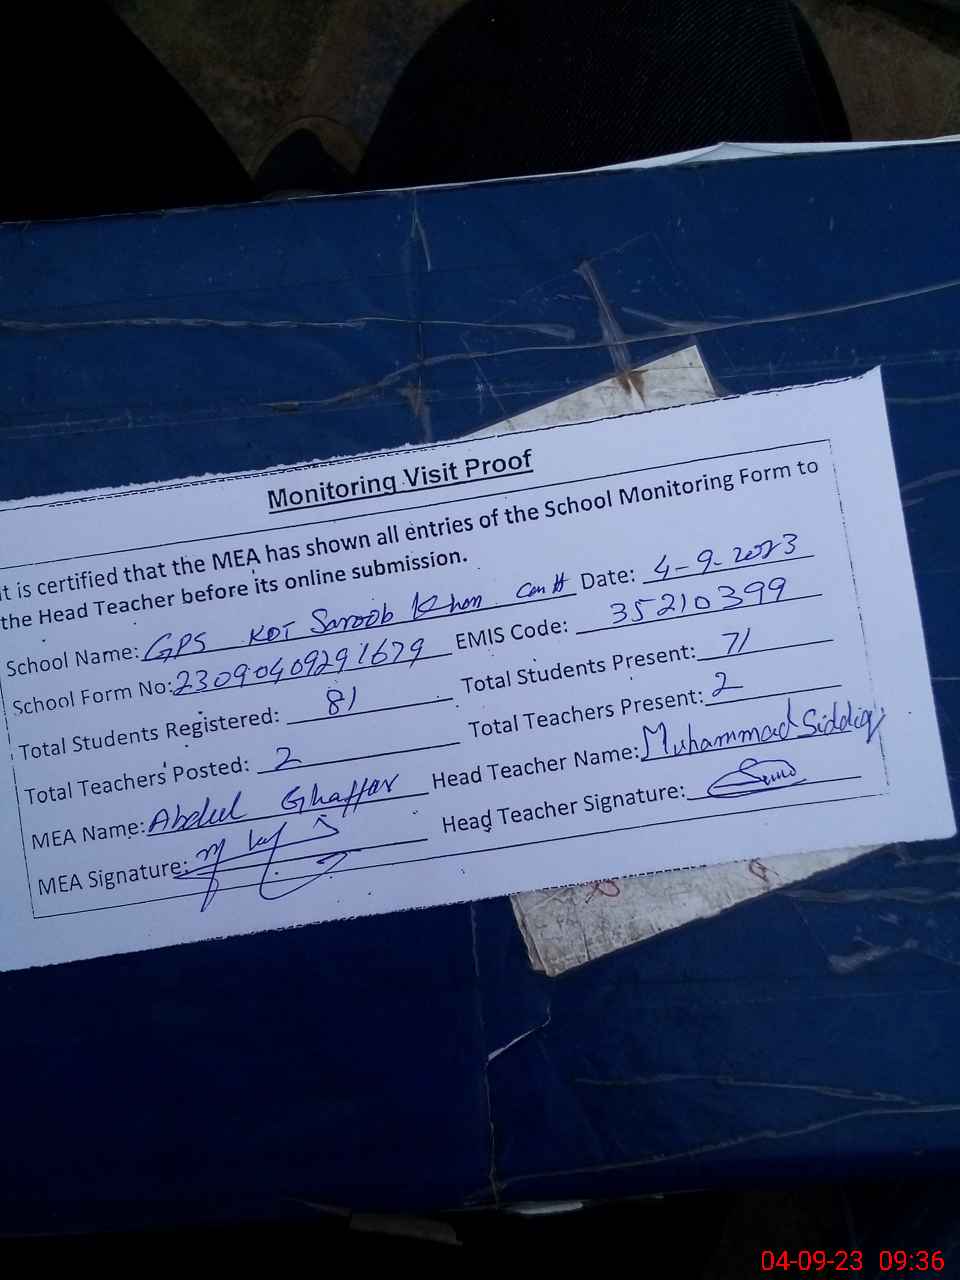 Monitoring Visit Proof
It is certified that the MEA has shown all entries of the School Monitoring Form to
the Head Teacher before its online submission.
School Name: GPS KOT Saroob Khan Cantt Date: 4-9-2023
School Form No: 23090409291679 EMIS Code: 35210399
Total Students Registered: 81 Total Students Present: 71
Total Teachers Posted: 2 Total Teachers Present: 2
MEA Name: Abdul Ghaffar Head Teacher Name: Muhammad Siddiq
MEA Signature: Head Teacher Signature:
04-09-23 09:36